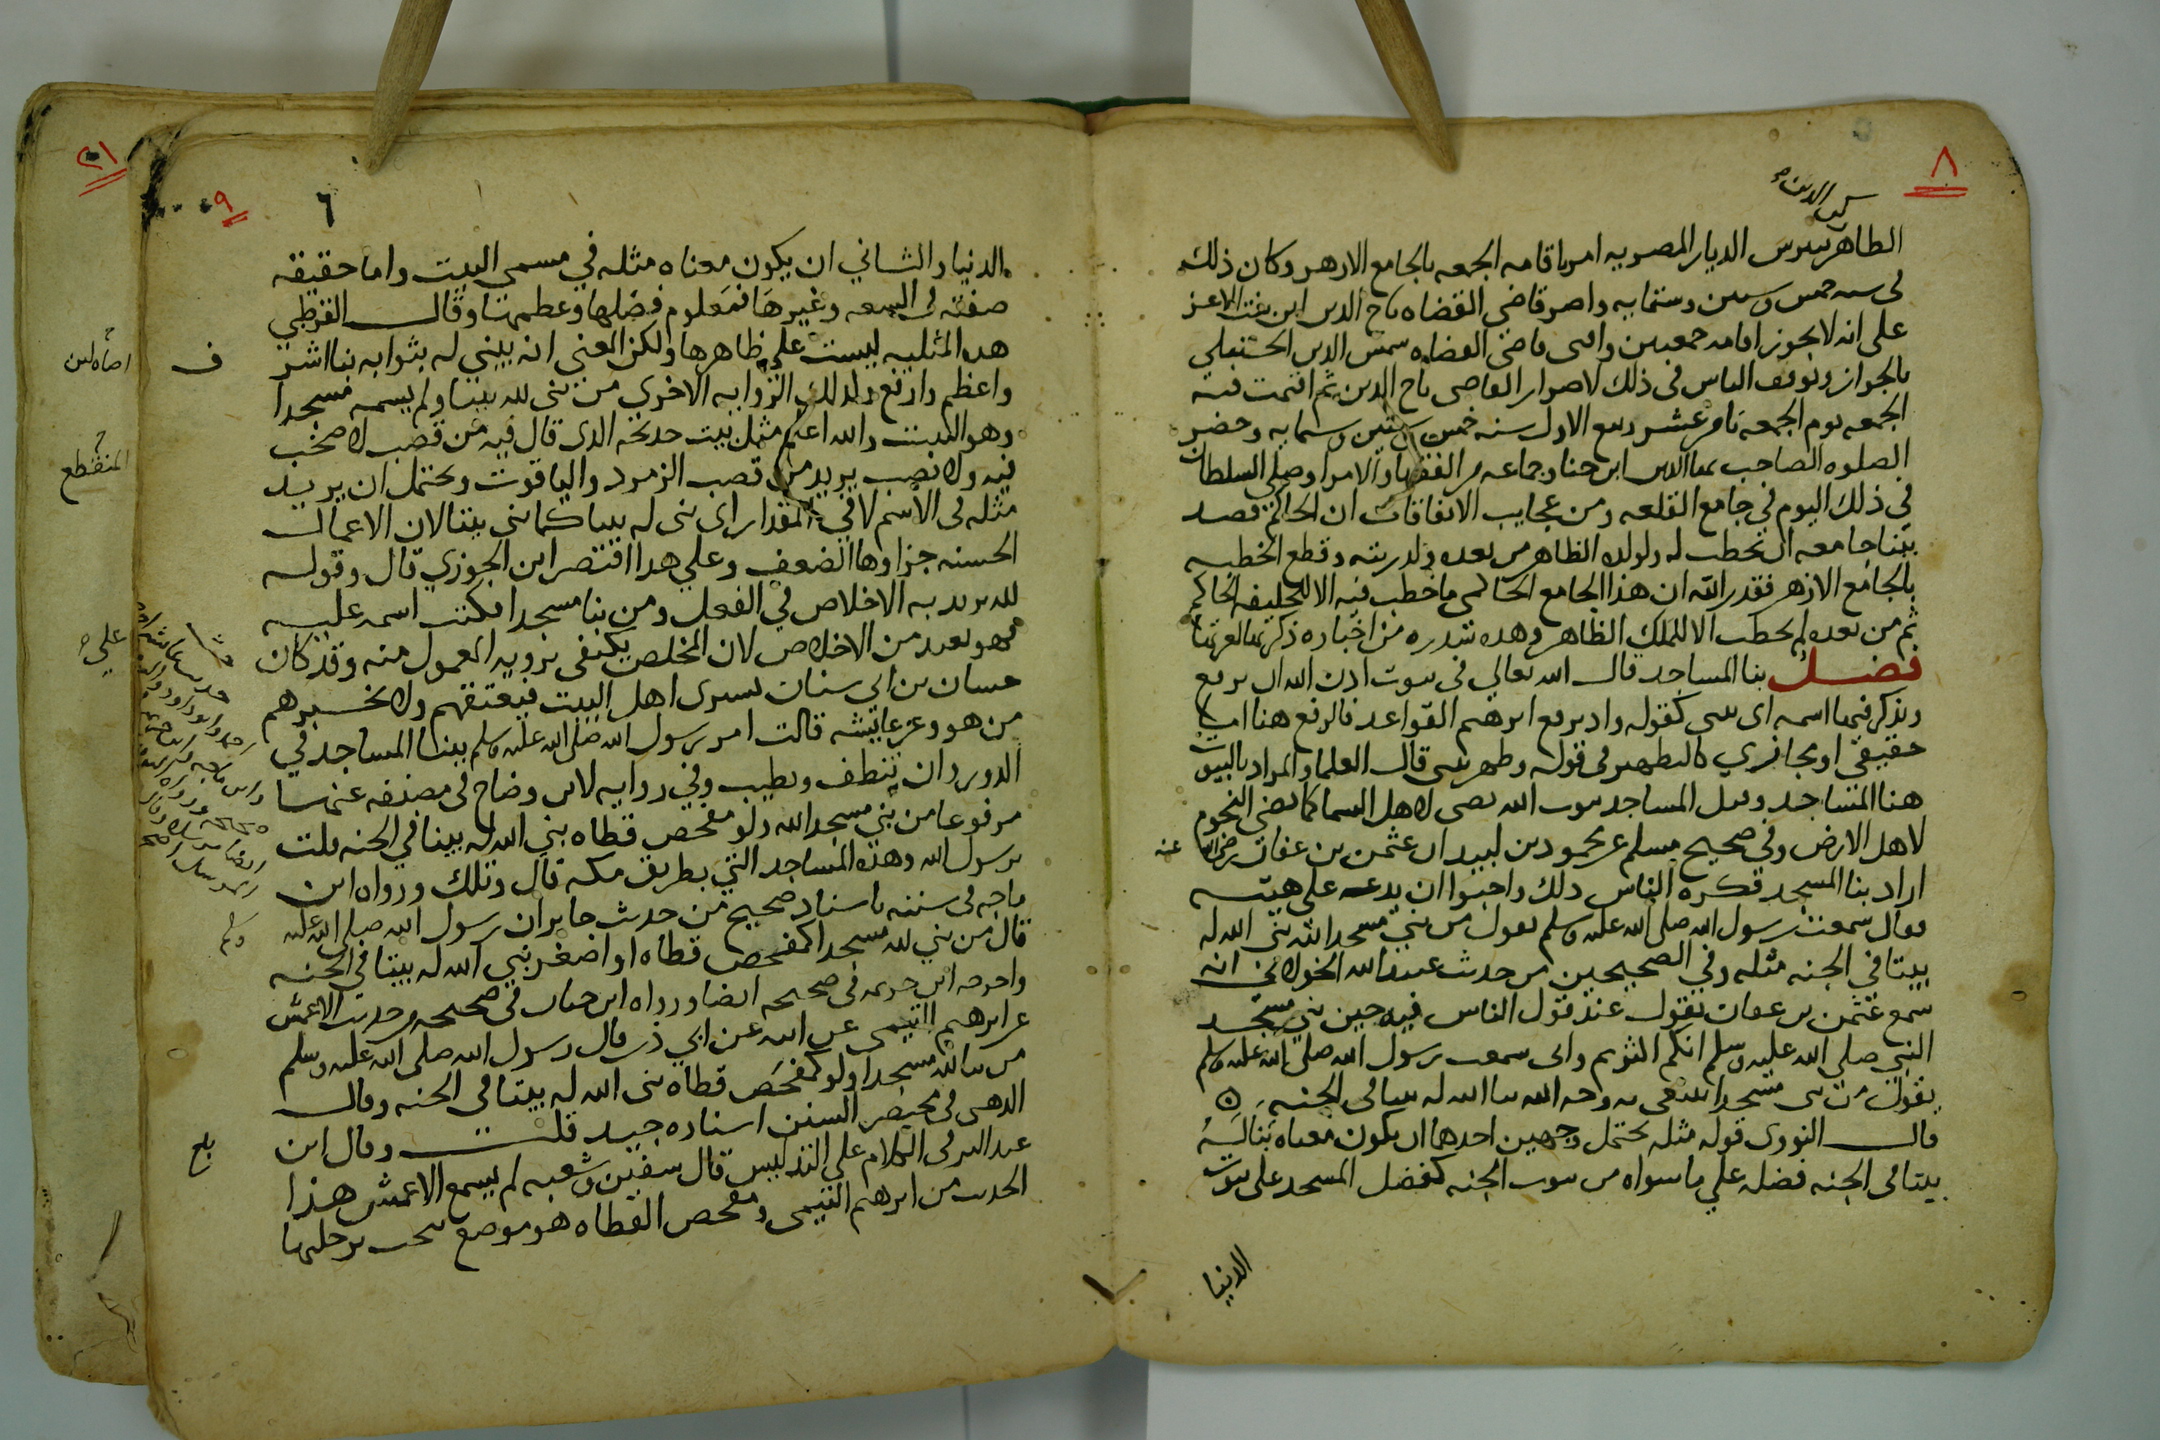 ٨
ركن الدين
الظاهر بيبرس الديار المصريه امر باقامه الجمعه بالجامع الازهر وكان ذلك
في سنه خمس وستين وستمايه واصر قاضي القضاه تاج الدين ابن بنت الاعز
على انه لا يجوز اقامه جمعتين وافتى قاضي القضاه شمس الدين الحنبلي
بالجواز وتوقف الناس في ذلك لاصرار القاضي تاج الدين ثم اقيمت فيه
الجمعه يوم الجمعه ثامن عشر ربيع الاول سنه خمس وستين وستمايه وحضر
الصلوه الصاحب بهاالدين ابن حنا وجماعه من الفقها والامرا وصلى السلطان
في ذلك اليوم في جامع القلعه ومن عجايب الاتفاقات ان الحاكم قصد
ببنا جامعه ان يخطب له ولولده الظاهر من بعده ولذريته وقطع الخطبه
بالجامع الازهر فقدر الله ان هذا الجامع الحاكمي ما خطب فيه الا للخليفه الحاكم
ثم من بعده لم يخطب الا للملك الظاهر وهده نبذه من اخباره ذكرتها لغرابتها
فصل بنا المساجد قال الله تعالى في بيوت اذن الله ان ترفع
ويذكر فيها اسمه اى تبنى كقوله واذ يرفع ابرهيم القواعد فالرفع هنا اما
حقيقي او مجازي كالتطهير في قوله وطهر بيتي قال العلما والمراد بالبيوت
هنا المساجد وقيل المساجد بيوت الله تضي لاهل السما كما تضي النجوم
لاهل الارض وفي صحيح مسلم عن محمود بن لبيد ان عثمن بن عفان رضي الله عنه
اراد بنا المسجد فكره الناس ذلك واحبوا ان يدعه على هيئته
فقال سمعت رسول الله صلى الله عليه وسلم يقول من بنى مسجدا لله بنى الله له
بيتا في الجنه مثله وفي الصحيحين من حديث عبيد الله الخولاني انه
سمع عثمن بن عفان يقول عند قول الناس فيه حين بني مسجد
النبي صلى الله عليه وسلم انكم اكثرتم واني سمعت رسول الله صلى الله عليه وسلم
يقول من بنى مسجدا يبتغي به وجه الله بنا الله له بيتا في الجنه
قال النووي قوله مثله يحتمل وجهين احدها ان يكون معناه بنا له
بيتا في الجنه فضله علي ما سواه من بيوت الجنه كفضل المسجد على بيوت
الدنيا
٩
٦
الدنيا والثاني ان يكون معناه مثله في مسمى البيت واما حقيقه
صفته في السعه وغيرها فمعلوم فضلها وعظمها وقال القرطبي
هذه المثليه ليست علي ظاهرها ولكن المعني انه يبني له بثوابه بنا اشرف
واعظم وارفع وكذلك الروايه الاخري من بنى لله بيتا ولم يسمه مسجدا
وهو البيت والله اعلم مثل بيت خديجه الذي قال فيه من قصب لا صخب
فيه ولا نصب يريد من قصب الزمرد والياقوت ويحتمل ان يريد
مثله في الاسم لا في المقدار اى بنى له بيتا كما بنى بيتا لان الاعمال
الحسنه جزاوها الضعف وعلي هذا اقتصر ابن الجوزي قال وقوله
لله يريد به الاخلاص في الفعل ومن بنا مسجدا فكتب اسمه عليه
فهو بعيد من الاخلاص لان المخلص يكتفي برويه المعمول منه وقد كان
حسان بن ابي سنان يشترى اهل البيت فيعتقهم ولا يخبرهم
من هو وعن عايشه قالت امر رسول الله صلى الله عليه وسلم ببنا المساجد في
الدور وان تنظف وتطيب وفي روايه لابن وضاح في مصنفه عنها
مرفوعا من بني مسجدا لله ولو مفحص قطاه بني الله له بيتا في الجنه قلت
يرسول الله وهذه المساجد التي بطريق مكه قال وتلك ورواه ابن
ماجه في سننه باسناد صحيح من حديث جابر ان رسول الله صلى الله عليه وسلم
قال من بني لله مسجدا كمفحص قطاه او اصغر بني الله له بيتا في الجنه
واخرجه ابن خزيمه في صحيحه ايضا ورواه ابن حبان في صحيحه من حديث الاعمش
عن ابرهيم التيمي عن ابيه عن ابي ذر قال رسول الله صلى الله عليه وسلم
من بنا لله مسجدا ولو كمفحص قطاه بنى الله له بيتا في الجنه وقال
الذهبي في مختصر السنن اسناده جيد قلت وقال ابن
عبد البر في الكلام علي التدليس قال سفين وشعبه لم يسمع الاعمش هذا
الحديث من ابرهيم التيمي ومفحص القطاه هو موضع تحت رجليها
ف
بلغ
٢١
المنقطع
علي